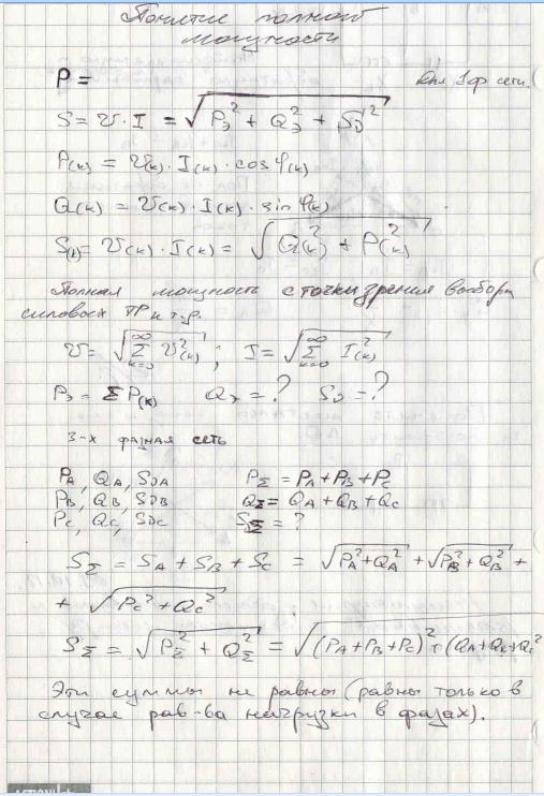 Понятие полной
мощности
P =
Для 1ф сети.
S = U · I = √(Pэ² + Qэ² + Sэ²)
P(к) = U(к) · I(к) · cos φ(к)
Q(к) = U(к) · I(к) · sin φ(к)
S(к) = U(к) · I(к) = √(Q(к)² + P(к)²)
Полная мощность с точки зрения выбора
силовых ТР и т.р.
U = √(∑ₖ₌₀^∞ U²(к)) ; I = √(∑ₖ₌₀^∞ I²(к))
Pэ = ΣP(к) Qэ = ? Sэ = ?
3-х фазная сеть
PA, QA, SDA PΣ = PA + PB + PC
PB, QB, SDB QΣ = QA + QB + QC
PC, QC, SDC SΣ = ?
SΣ = SA + SB + SC = √(PA² + QA²) + √(PB² + QB²) +
+ √(PC² + QC²)
SΣ = √(PΣ² + QΣ²) = √((PA + PB + PC)² + (QA + QB + QC)²
Эти суммы не равны (равны только в
случае рав-ва нагрузки в фазах).